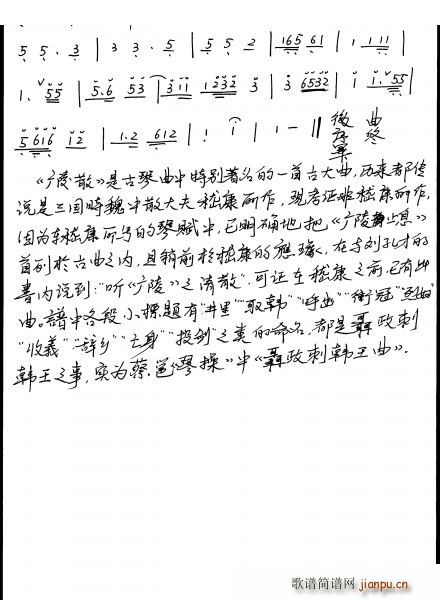 5 5 . 3 | 3 3 . 5 | 5 5 2 | 165 61 | 1 1 11 |
1. 55 | 5.6 53 | 3 11 1232 3 | 3 6532 | 1 1.55 |
5616 12 | 1.2 612 | 1 1 | 1 - ‖ 曲
终
《广陵散》是古琴曲中特别著名的一首古大曲,历来都传
说是三国时魏中散大夫嵇康所作,现考证非嵇康所作,
因为在嵇康所写的琴赋中,已明确地把《广陵止息》
首列於古曲之内,且稍前於嵇康的應璩,在与刘孔才的
書内说到:"听《广陵》之清散",可证在嵇康之前已有此
曲。譜中各段小標題有"井里""取韩""呼幽""衝冠"
"收義""辞乡""亡身""投剑"之类的命名,都是聶政刺
韩王之事,实为蔡邕《琴操》中《聶政刺韩王曲》.
歌谱简谱网
jianpu.cn